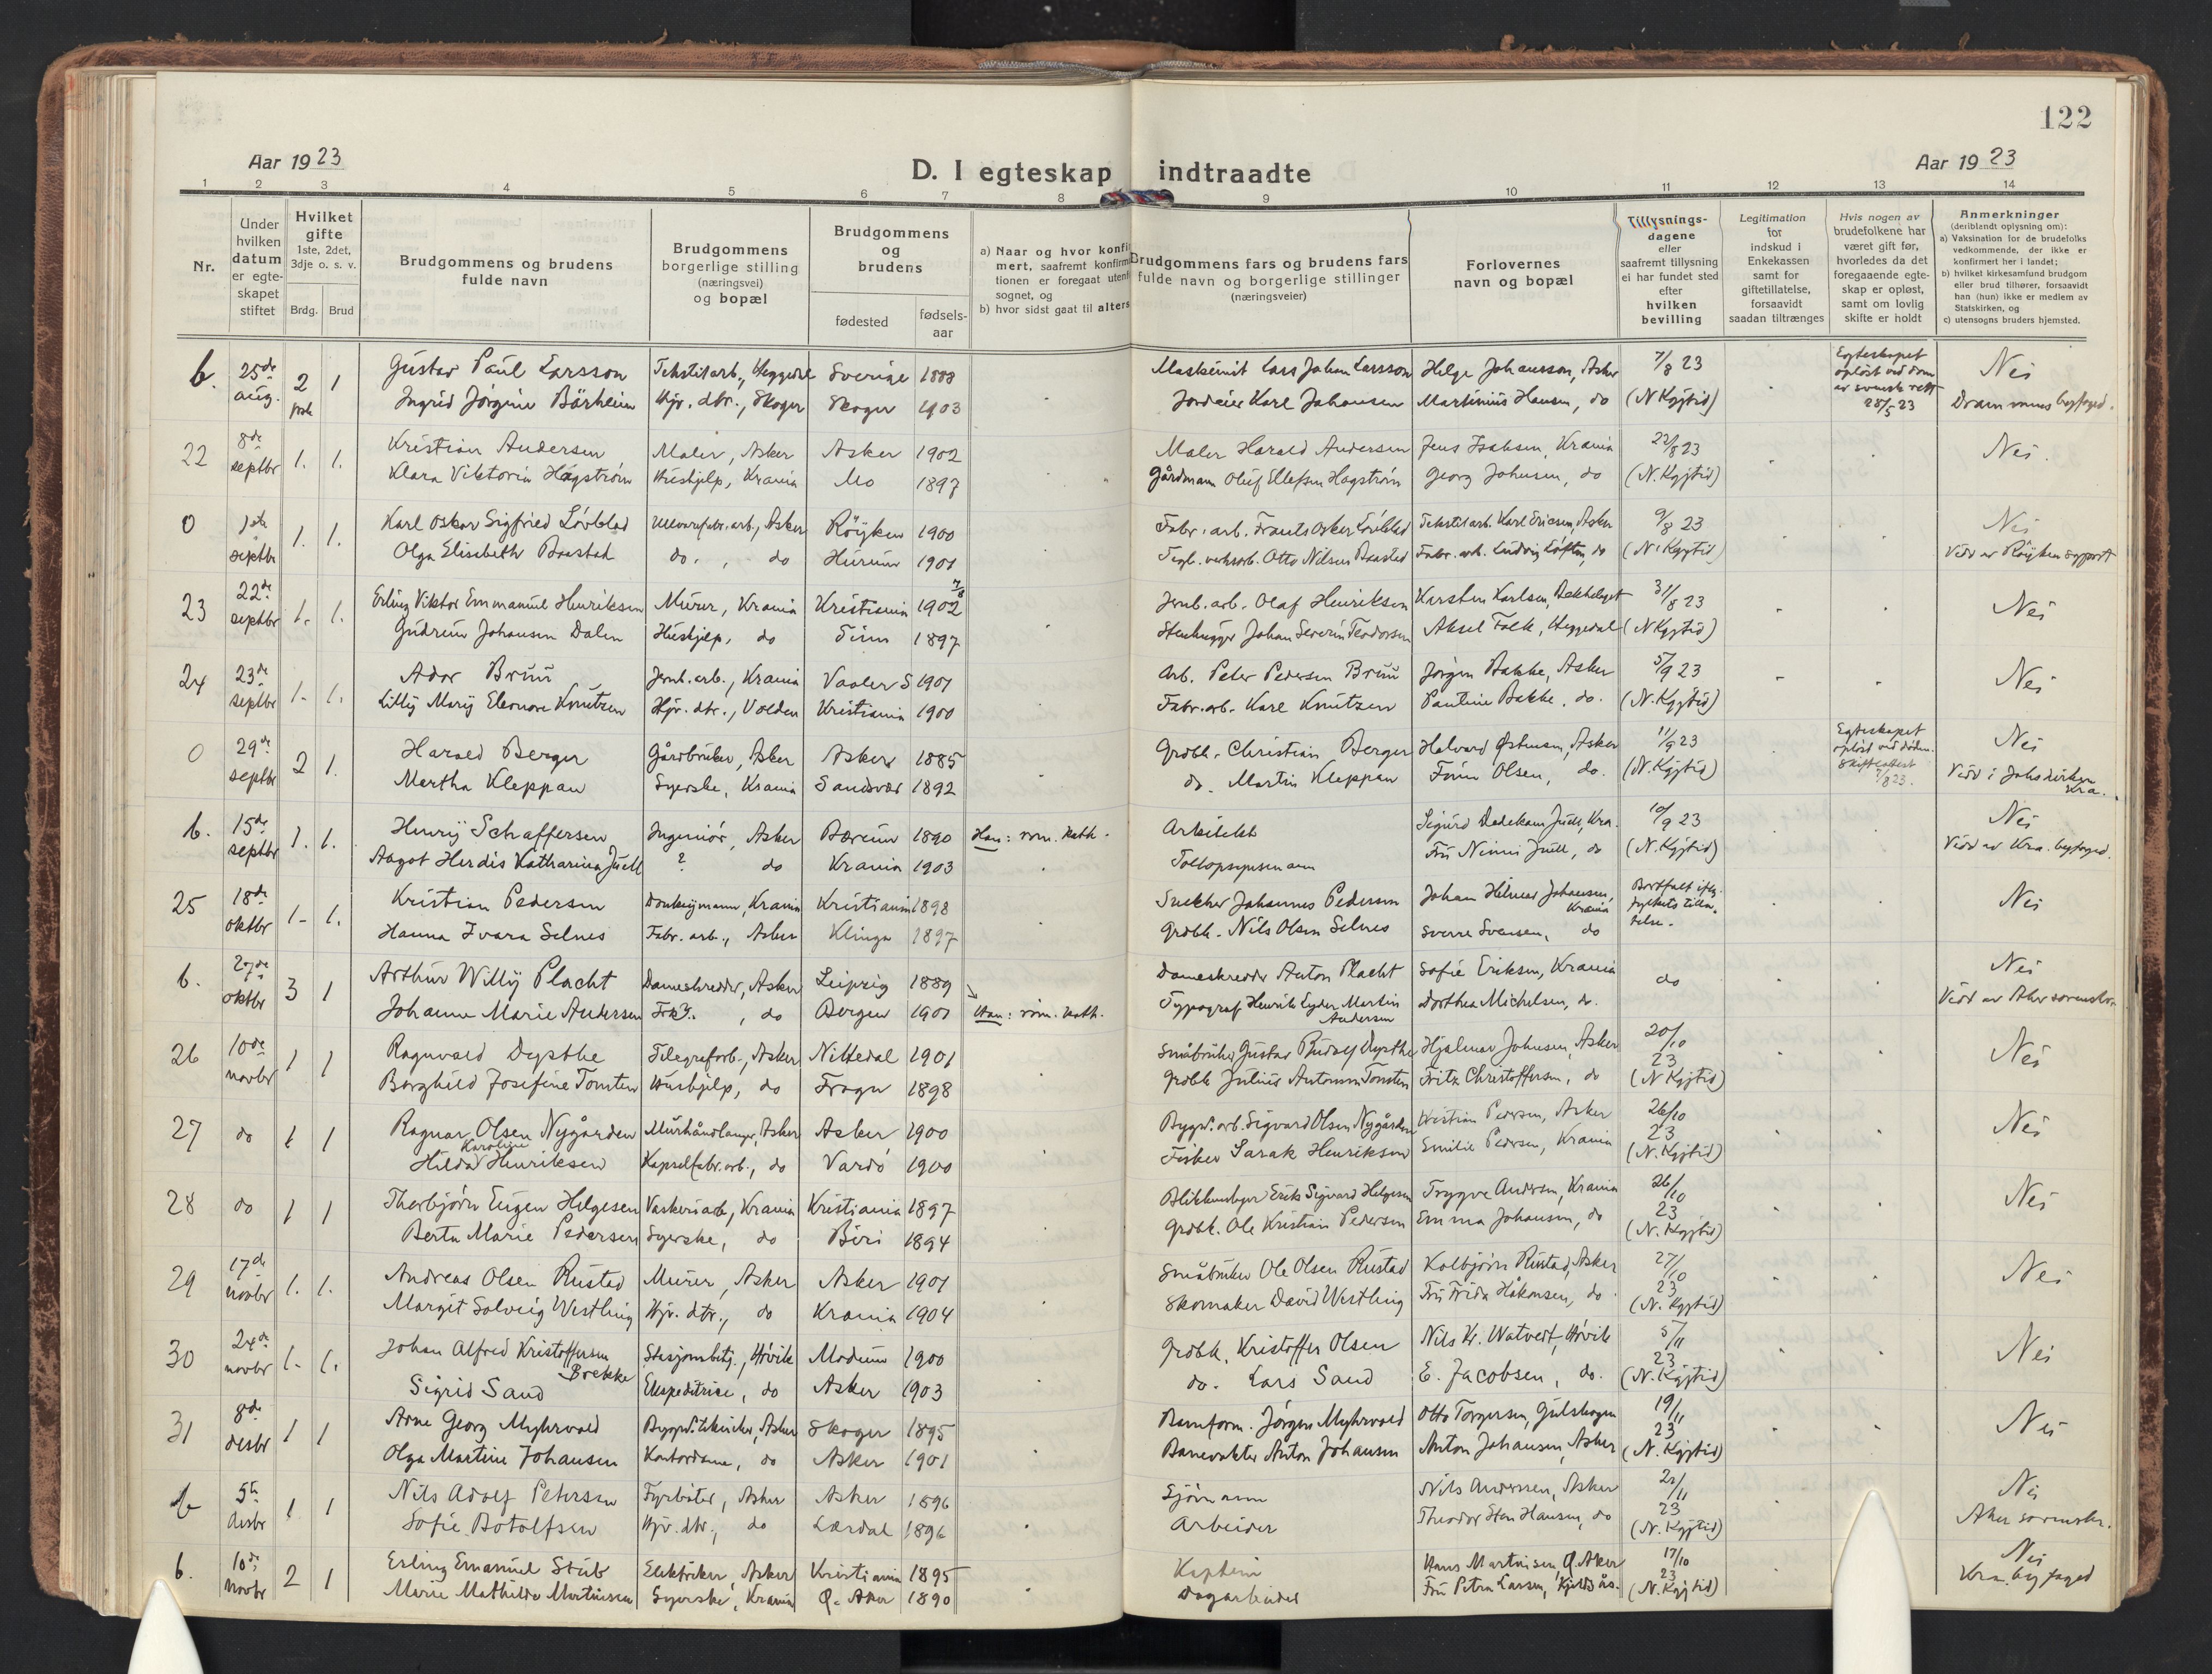 122
Aar 1923
D. I egteskap indtraadte
Aar 1923
1 2 3 4 5 6 7 8 9 10 11 12 13 14
Nr.
Under hvilken datum er egteskapet stiftet
Hvilket gifte 1ste, 2det, 3dje o. s. v.
Brdg. Brud
Brudgommens og brudens fulde navn
Brudgommens borgerlige stilling (næringsvei) og bopæl
Brudgommens og brudens
fødested
fødselsaar
a) Naar og hvor konfirmert, saafremt konfirmationen er foregaat utenfor sognet, og
b) hvor sidst gaat til alters
Brudgommens fars og brudens fars fulde navn og borgerlige stillinger (næringsveier)
Forlovernes navn og bopæl
Tillysningsdagene eller saafremt tillysning ei har fundet sted efter hvilken bevilling
Legitimation for indskud i Enkekassen samt for giftetillatelse, forsaavidt saadan tiltrænges
Hvis nogen av brudefolkene har været gift før, hvorledes da det foregaaende egteskap er opløst, samt om lovlig skifte er holdt
Anmerkninger (deriblandt oplysning om):
a) Vaksination for de brudefolks vedkommende, der ikke er konfirmert her i landet;
b) hvilket kirkesamfund brudgom eller brud tilhører, forsaavidt han (hun) ikke er medlem av Statskirken, og
c) utensogns bruders hjemsted.
b. 25de aug. 2 1 Gustav Paul Larsson Tekstilarb., Heggedal Sverige 1888 Lars Johan Larsson Helge Johansson, Asker 7/8 23 Egteskapet opløst ved dom av svensk rett 28/5 23 Nei
Ingrid Jørgine Bårheim Hjv. dtr., Skoger Skoger 1903 Jordeier Karl Johansen Martinius Hansen, do (N Kgjtid) Drammens byfoged.
22 8de septbr 1. 1. Kristian Andersen Maler, Asker Asker 1902 Maler Harald Andersen Jens Isaksen, Krania 22/8 23 Nei.
Klara Viktoria Hagstrøm Hushjelp, Krania Mo 1897 Gårdmann Oluf Ellefsen Hagstrøm Georg Johnsen, do (N. Kgjtid)
0 1ste septbr 1. 1. Karl Oskar Sigfried Lövblad Ullvarefabr. arb., Asker Röyken 1900 Fabr. arb. Frants Oskar Lövblad Tekstilarb. Karl Ericsen, Asker 9/8 23 Nei
Olga Elisabeth Baastad do., do Hurum 1901 Tegl.verksarb. Otto Nilsen Baastad Fabr. arb. Ludvig Löften, do (N. Kgjtid) Viet av Röyken sogneprest
23 22de septbr 1. 1. Erling Viktor Emmanuel Henriksen Murer, Krania Kristiania 7/8 1902 Jernb. arb. Olaf Henriksen Karsten Karlsen, 31/8 23 Nei
Gudrun Johansen Dalen Hushjelp, do Tinn 1897 Stenhugger Johan Severin Teodorsen Aksel Falk, Heggedal (N Kgjtid)
24 23de septbr 1. 1. Ador Bruu Jernb. arb., Krania Vaaler S 1901 Arb. Peter Pedersen Bruu Jørgen Bakke, Asker 5/9 23 Nei
Lilly Mary Eleonore Knutzen Hjv. dtr., Volden Kristiania 1900 Fabr. arb. Karl Knutzen Pauline Bakke, do. (N. Kgjtid)
0 29de septbr 2 1. Harald Berger Gårdbruker, Asker Asker 1885 Grdbk. Christian Berger Halvard Østensen, Asker 11/9 23 Egteskapet opløst ved døden. Skifteattest 7/8 23. Nei
Martha Kleppan Syerske, Krania Sandsvær 1892 do. Martin Kleppan Finn Olsen, do. (N. Kgjtid) Viet i Johs. kirken Kra.
b. 15de septbr 1. 1. Henry Schaffersen Ingeniør, Asker Bærum 1890 Han: rom. kath. Arkitekt Sigurd Dedekam Juell, Kra. 10/9 23 Nei
Aagot Herdis Katharina Juell ? do Krania 1903 Tollopsynsmann Fru Ninni Juell, do (N. Kgjtid) Viet av Kra. byfoged.
25 18de oktbr 1. 1. Kristian Pedersen Donkeymann, Krania Kristiania 1898 Snekker Johannes Pedersen Johan Hilmar Johansen, Krania Bortfalt iflg. fylkets tillatelse. Nei
Hanna Ivara Selnes Fabr. arb., Asker Klinga 1897 Grdbk. Nils Olsen Selnes Sverre Svensen, do
b. 27de oktbr 3 1 Arthur Willy Placht Dameskredder, Asker Leipzig 1889 Dameskredder Anton Placht Sofie Eriksen, Krania do Nei
Johanne Marie Andersen Frk., do Bergen 1901 Han: rom. kath. Typograf Henrik Lyder Martin Andersen Dorthea Michelsen, do. Viet av Aker sorenskr.
26 10de novbr 1 1 Ragnvald Dysthe Telegrafarb., Asker Nittedal 1901 Småbruker Gustav Rudolf Dysthe Hjalmar Johnsen, Asker 20/10 23 Nei
Borghild Josefine Tomten Hushjelp, do Frogn 1898 Grdbk Julius Antonsen Tomten Fritz Christoffersen, do (N Kgjtid)
27 do 1 1 Ragnar Olsen Nygården Murhåndlanger, Asker Asker 1900 Bygn. arb. Sigvard Olsen Nygården Kristian Pedersen, Asker 26/10 23 Nei
Hilda Karoline Henriksen Kapselfabr. arb., do Vardö 1900 Fisker Sarak Henriksen Emilie Pedersen, Krania (N. Kgjtid)
28 do 1 1 Thorbjørn Eugen Helgesen Vaskeriarb., Krania Kristiania 1897 Blikkenslager Erik Sigvard Helgesen Trygve Andersen, Krania 26/10 23 Nei
Berta Marie Pedersen Syerske, do Biri 1894 Grdbk. Ole Kristian Pedersen Emma Johansen, do (N. Kgjtid)
29 17de novbr 1. 1. Andreas Olsen Rustad Murer, Asker Asker 1901 Småbruker Ole Olsen Rustad Kolbjørn Rustad, Asker 27/10 23 Nei
Margit Solveig Westling Hjv. dtr., do Krania 1904 Skomaker David Westling Fru Frida Håkonsen, do. (N. Kgjtid)
30 24de novbr 1. 1. Johan Alfred Kristoffersen Brekke Stasjonsbetj., Høvik Modum 1900 Grdbk. Kristoffer Olsen Nils Kr. Watvedt, Høvik 5/11 23 Nei
Sigrid Sand Ekspeditrise, do Asker 1903 do. Lars Sand E. Jacobsen, do. (N. Kgjtid)
31 8de desbr 1 1 Arne Georg Myhrvold Asker Skoger 1895 Baneform. Jørgen Myhrvold Otto Torgersen, Gulskogen 19/11 23 Nei
Olga Martine Johansen Kontordame, do Asker 1901 Banevokter Anton Johansen Anton Johansen, Asker (N. Kgjtid)
b 5te desbr 1 1 Nils Adolf Petersen Fyrbøter, Asker Asker 1896 Sjömann Nils Anderssen, Asker 22/11 23 Nei
Sofie Botolfsen Hjv. dtr., do Lærdal 1896 Arbeider Theodor Sten Hansen, do (N. Kgjtid) Aker sorenskr.
b. 10de novbr 2 1 Erling Emanuel Stub Elektriker, Asker Kristiania 1895 Kaptein Hans Martinsen Ø. Aker 17/10 23 Nei
Marie Mathilde Martinsen Syerske, Krania Ø. Aker 1890 Dagarbeider Fru Petra Larsen, Kjeldsås. (N. Kgjtid) Kra. byfoged